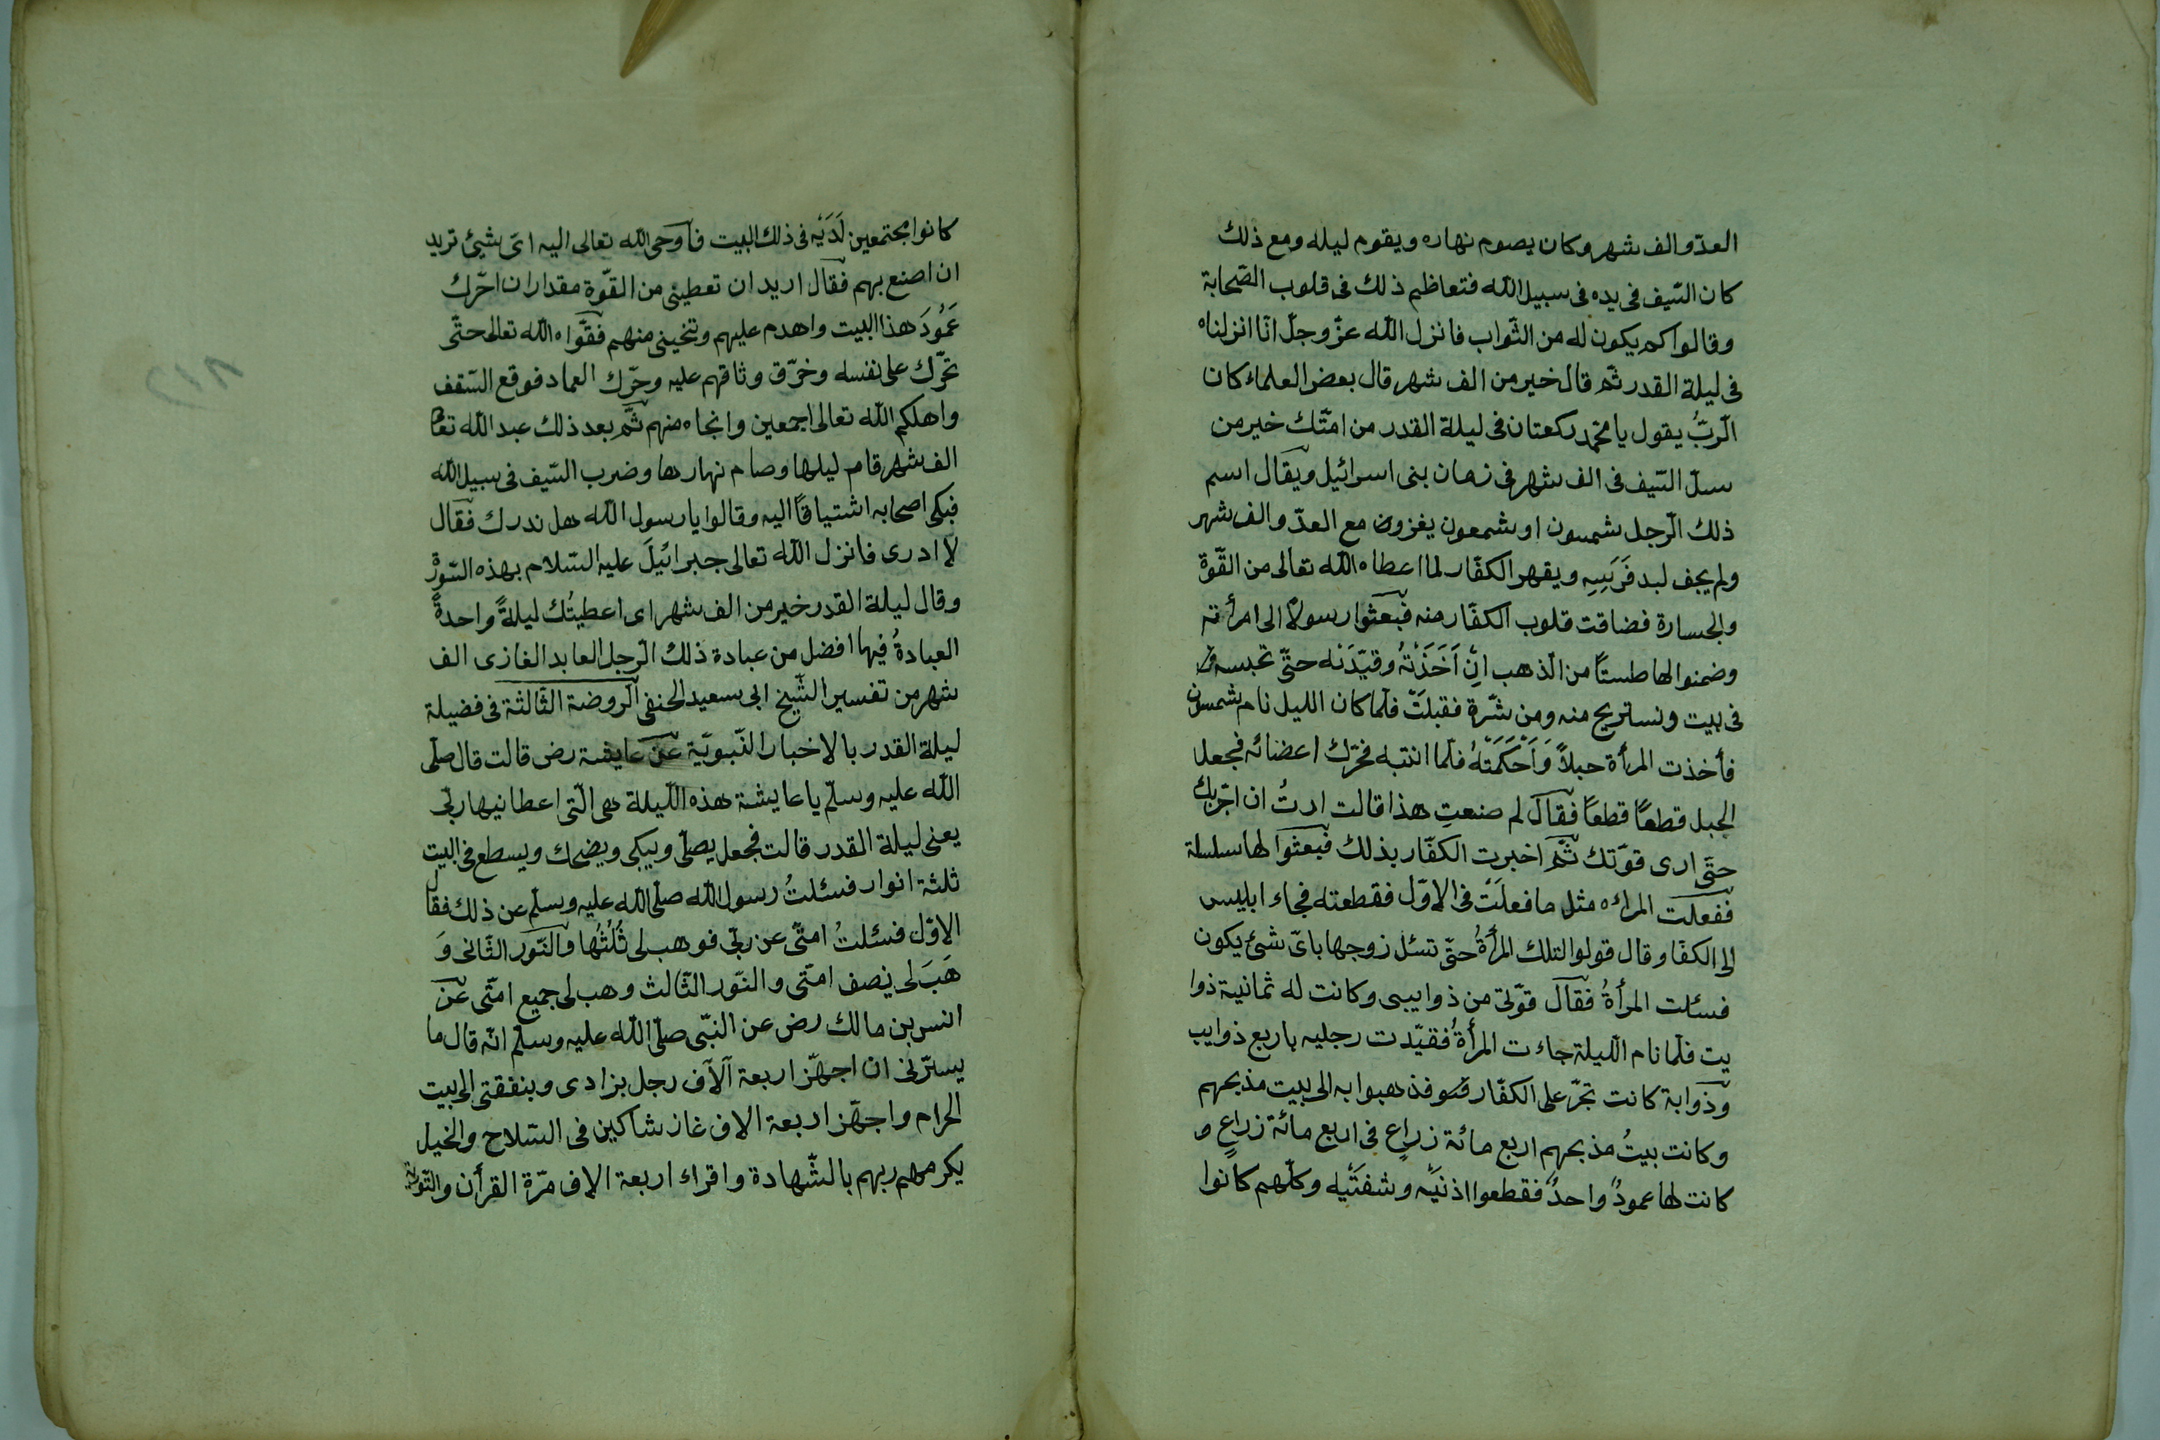 العدوّ الف شهر وكان يصوم نهاره ويقوم ليله ومع ذلك
كان السّيف فى يده فى سبيل الله فتعاظم ذلك فى قلوب الصّحابة
وقالوا كم يكون له من الثّواب فانزل الله عزّ وجلّ انّا انزلناه
فى ليلة القدر ثم قال خير من الف شهر قال بعض العلماء كان
الرّبّ يقول يا محمد ركعتان فى ليلة القدر من امّتك خير من
سلّ السّيف فى الف شهر فى زمان بنى اسرائيل ويقال اسم
ذلك الرّجل شمسون او شمعون يغزون مع العدّو الف شهر
ولم يجف لبد فَرَسِهِ ويقهر الكفّار لما اعطاه الله تعالى من القوّة
والجسارة فضاقت قلوب الكفّار منه فبعثوا رسولاً الى امرأته
وضمنوا لها طستًا من الذهب اِنْ اَخَذَتْهُ وقيّدَتْه حتّى تحبسه
فى بيت ونستريح منه ومن شرّه فقبلتْ فلمّا كان الليل نام شمسون
فأخذت المرأة حبلاً وَاَحْكَمَتْهُ فلمّا انتبه فحرّك اعضائه فجعل
الحبل قطعًا قطعًا فقال لم صنعتِ هذا قالت اردتُ ان اجرّبك
حتّى ارى قوّتك ثمّ اخبرت الكفّار بذلك فبعثوا لها سلسلة
ففعلت المراه مثل ما فعلَتْ فى الاوّل فقطعته فجاء ابليس
الى الكفّا وقال قولوا لتلك المرأةُ حتّى تسئل زوجها باىّ شئ يكون
فسئلت المرأةُ فقال قوّتى من ذوايبى وكانت له ثمانية ذوا
يت فلمّا نام الليلة جاءت المرأةُ فقيّدت رجليه باربع ذوايب
وذوابة كانت تجرّ على الكفّار فذهبوا به الى بيت مذبحهم
وكانت بيتُ مذبحهم اربع مائة زراعٍ فى اربع مائة زراعٍ و
كانت لها عمودٌ واحدٌ فقطعوا اذنَيْه وشفتَيْه وكلّهم كانوا
كانوا مجتمعين لَدَيْه فى ذلك البيت فأوحى الله تعالى اليه اىّ شيئ تريد
ان اصنع بهم فقال اريد ان تعطينى من القوّة مقدار ان احرّك
عَمُودَ هذا البيت واهدم عليهم وتنجينى منهم فقوّاه الله تعالى حتّى
تحرّك على نفسه وخرّق وثاقهم عليه وحرّك العماد فوقع السّقف
واهلكهم الله تعالى اجمعين وانجاه منهم ثمّ بعد ذلك عبد الله تعا
الف شهر قام ليلها وصام نهارها وضرب السّيف فى سبيل الله
فبكى اصحابه اشتياقًا اليه وقالوا يا رسول الله هل ندرك فقال
لا ادرى فانزل الله تعالى جبرائيلَ عليه السّلام بهذه السّورة
وقال ليلة القدر خير من الف شهر اى اعطيتُك ليلةً واحدةً
العبادةُ فيها افضل من عبادة ذلك الرّجل العابد الغازى الف
شهر من تفسير الشّيخ ابى سعيد الحنفى الرّوضة الثّالثة فى فضيلة
ليلة القدر بالاخبار النّبويّة عن عايشة رض قالت قال صلّى
الله عليه وسلّم يا عايشة هذه اللّيلة هى الّتى اعطانيها ربّى
يعنى ليلة القدر قالت فجعل يصلّى ويبكى ويضحك ويسطع فى البيت
ثلثة انوار فسئلتُ رسول الله صلّى الله عليه وسلّم عن ذلك فقال
الاوّل فسئلتُ امتّى عن ربّى فوهب لى ثُلُثُها والنّور الثّانى وَ
هَبَ لى نصف امتّى والنّور الثّالث وهب لى جميع امتّى عن
انس بن مالك رض عن النبّى صلّى الله عليه وسلّم انّه قال ما
يسرّنى ان اجهّز اربعة آلآف رجل بزادى وبنفقتى الى بيت
الحرام واجهّز اربعة الاف غاز شاكين فى السّلاح والخيل
يكرمهم ربهم بالشّهادة واقراء اربعة الاف مرّة القرأن والتّورية